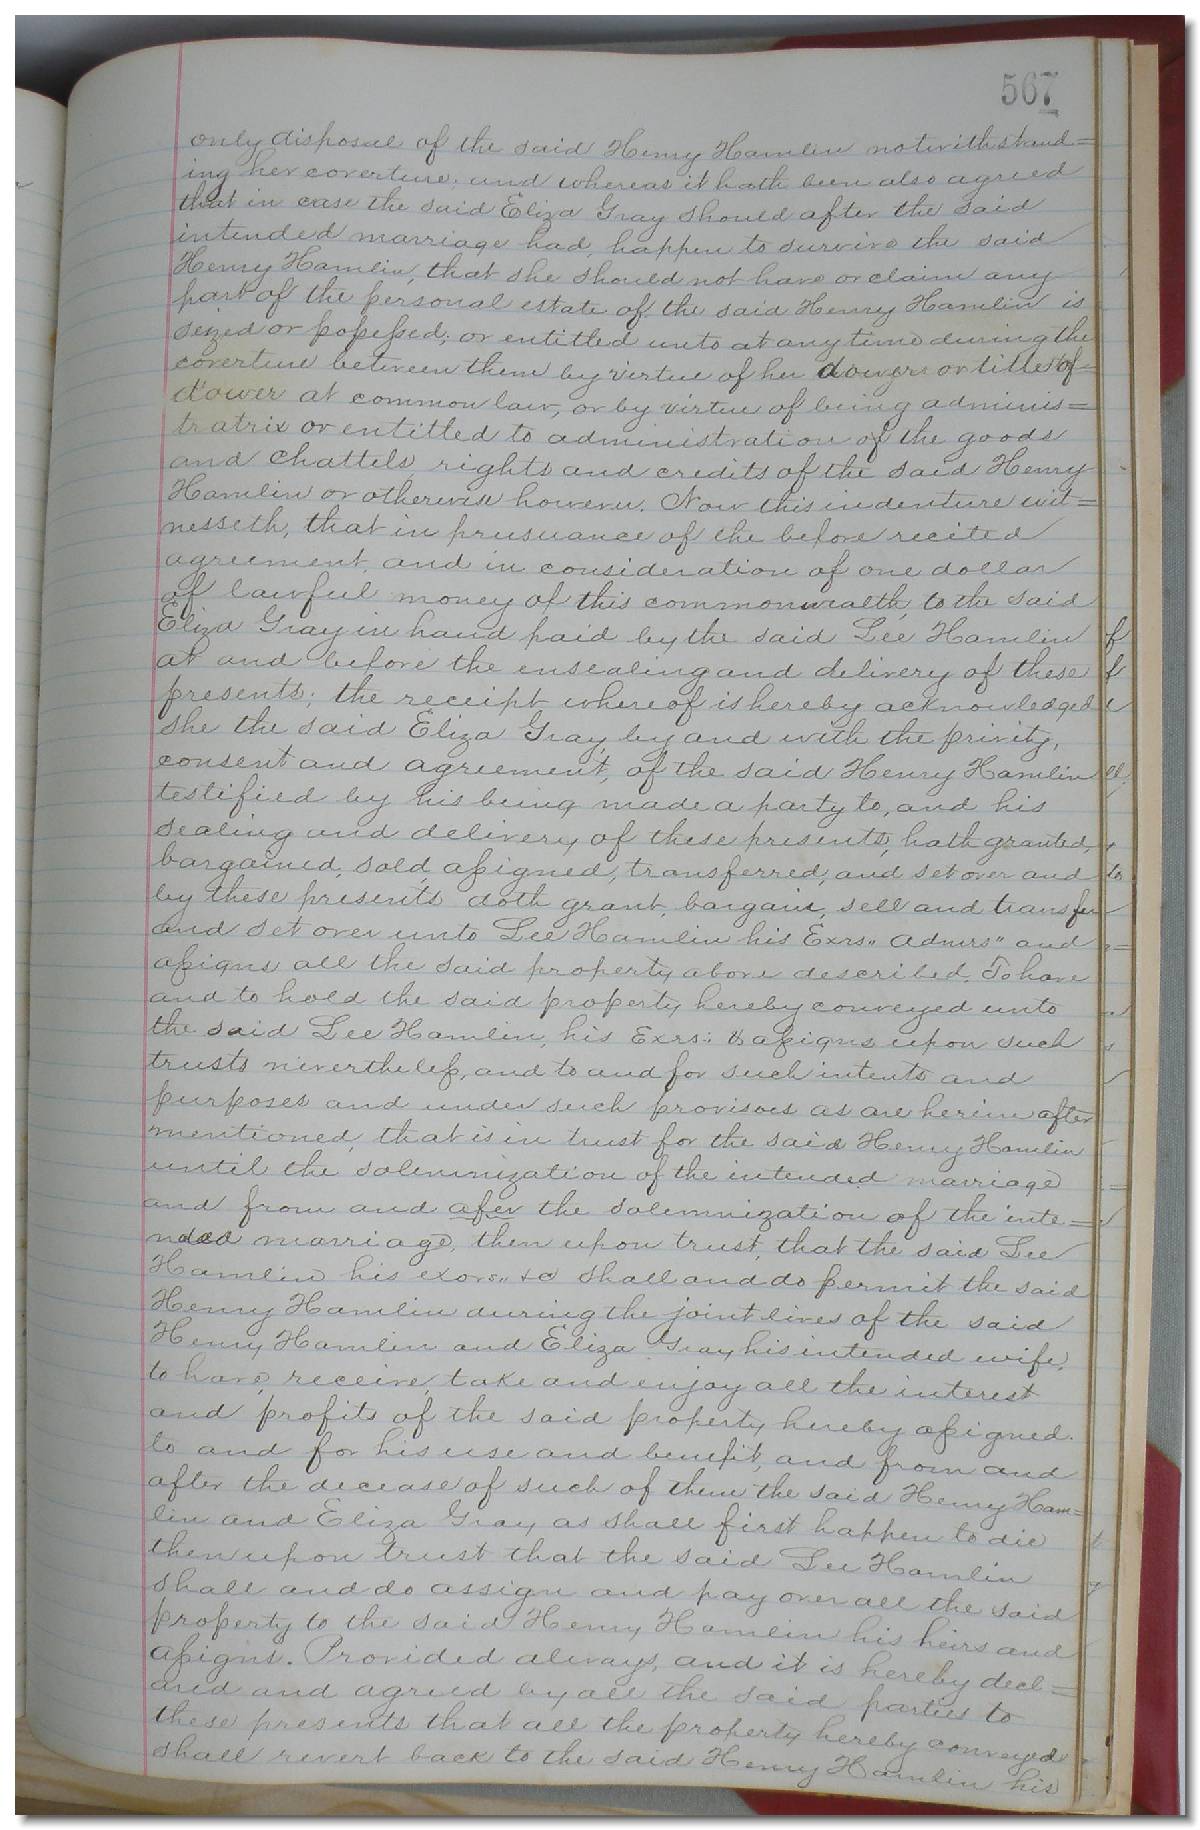 567
only disposal of the said Henry Hamlin notwithstand=
ing her coverture; and whereas it hath been also agreed
that in case the said Eliza Gray should after the said
intended marriage had, happen to survive the said
Henry Hamlin, that she should not have or claim any
part of the personal estate of the said Henry Hamlin is
seized or possessed; or entitled unto at any time during the
coverture between them by virtue of her dowers or titles of
dower at common law, or by virtue of being adminis=
tratrix or entitled to administration of the goods
and chattels rights and credits of the said Henry
Hamlin or otherwise however. Now this indenture wit=
nesseth, that in prusuance of the before recited
agreement, and in consideration of one dollar
of lawful money of this commonwealth, to the said
Eliza Gray in hand paid by the said Lee Hamlin
at and before the ensealing and delivery of these
presents; the receipt whereof is hereby acknowledged
she the said Eliza Gray, by and with the privity,
consent and agreement, of the said Henry Hamlin
testified by his being made a party to, and his
sealing and delivery of these presents, hath granted,
bargained, sold, assigned, transferred, and set over and
by these presents doth grant, bargain, sell and transfer
and set over unto Lee Hamlin his Exrs,, Admrs" and
assigns all the said property above described. To have
and to hold the said property hereby conveyed unto
the said Lee Hamlin, his Exrs: & assigns upon such
trusts nivertheless, and to and for such intents and
purposes and under such provisoes as are herin after
mentioned, that is in trust for the said Henry Hamlin
until the solemnization of the intended marriage
and from and afer the solemnization of the inte=
nded marriage, then upon trust, that the said Lee
Hamlin his exors,, &c shall and do permit the said
Henry Hamlin during the joint lives of the said
Henry Hamlin and Eliza Gray his intended wife,
to have, receive, take and enjoy all the interest
and profits of the said property hereby assigned.
to and for his use and benefit, and from and
after the decease of such of them the said Henry Ham=
lin and Eliza Gray as shall first happen to die
then upon trust that the said Lee Hamlin
shall and do assign and pay over all the said
property to the said Henry Hamlin his heirs and
assigns. Provided always, and it is hereby decl=
ared and agreed by all the said parties to
these presents that all the property hereby conveyed
shall revert back to the said Henry Hamlin his